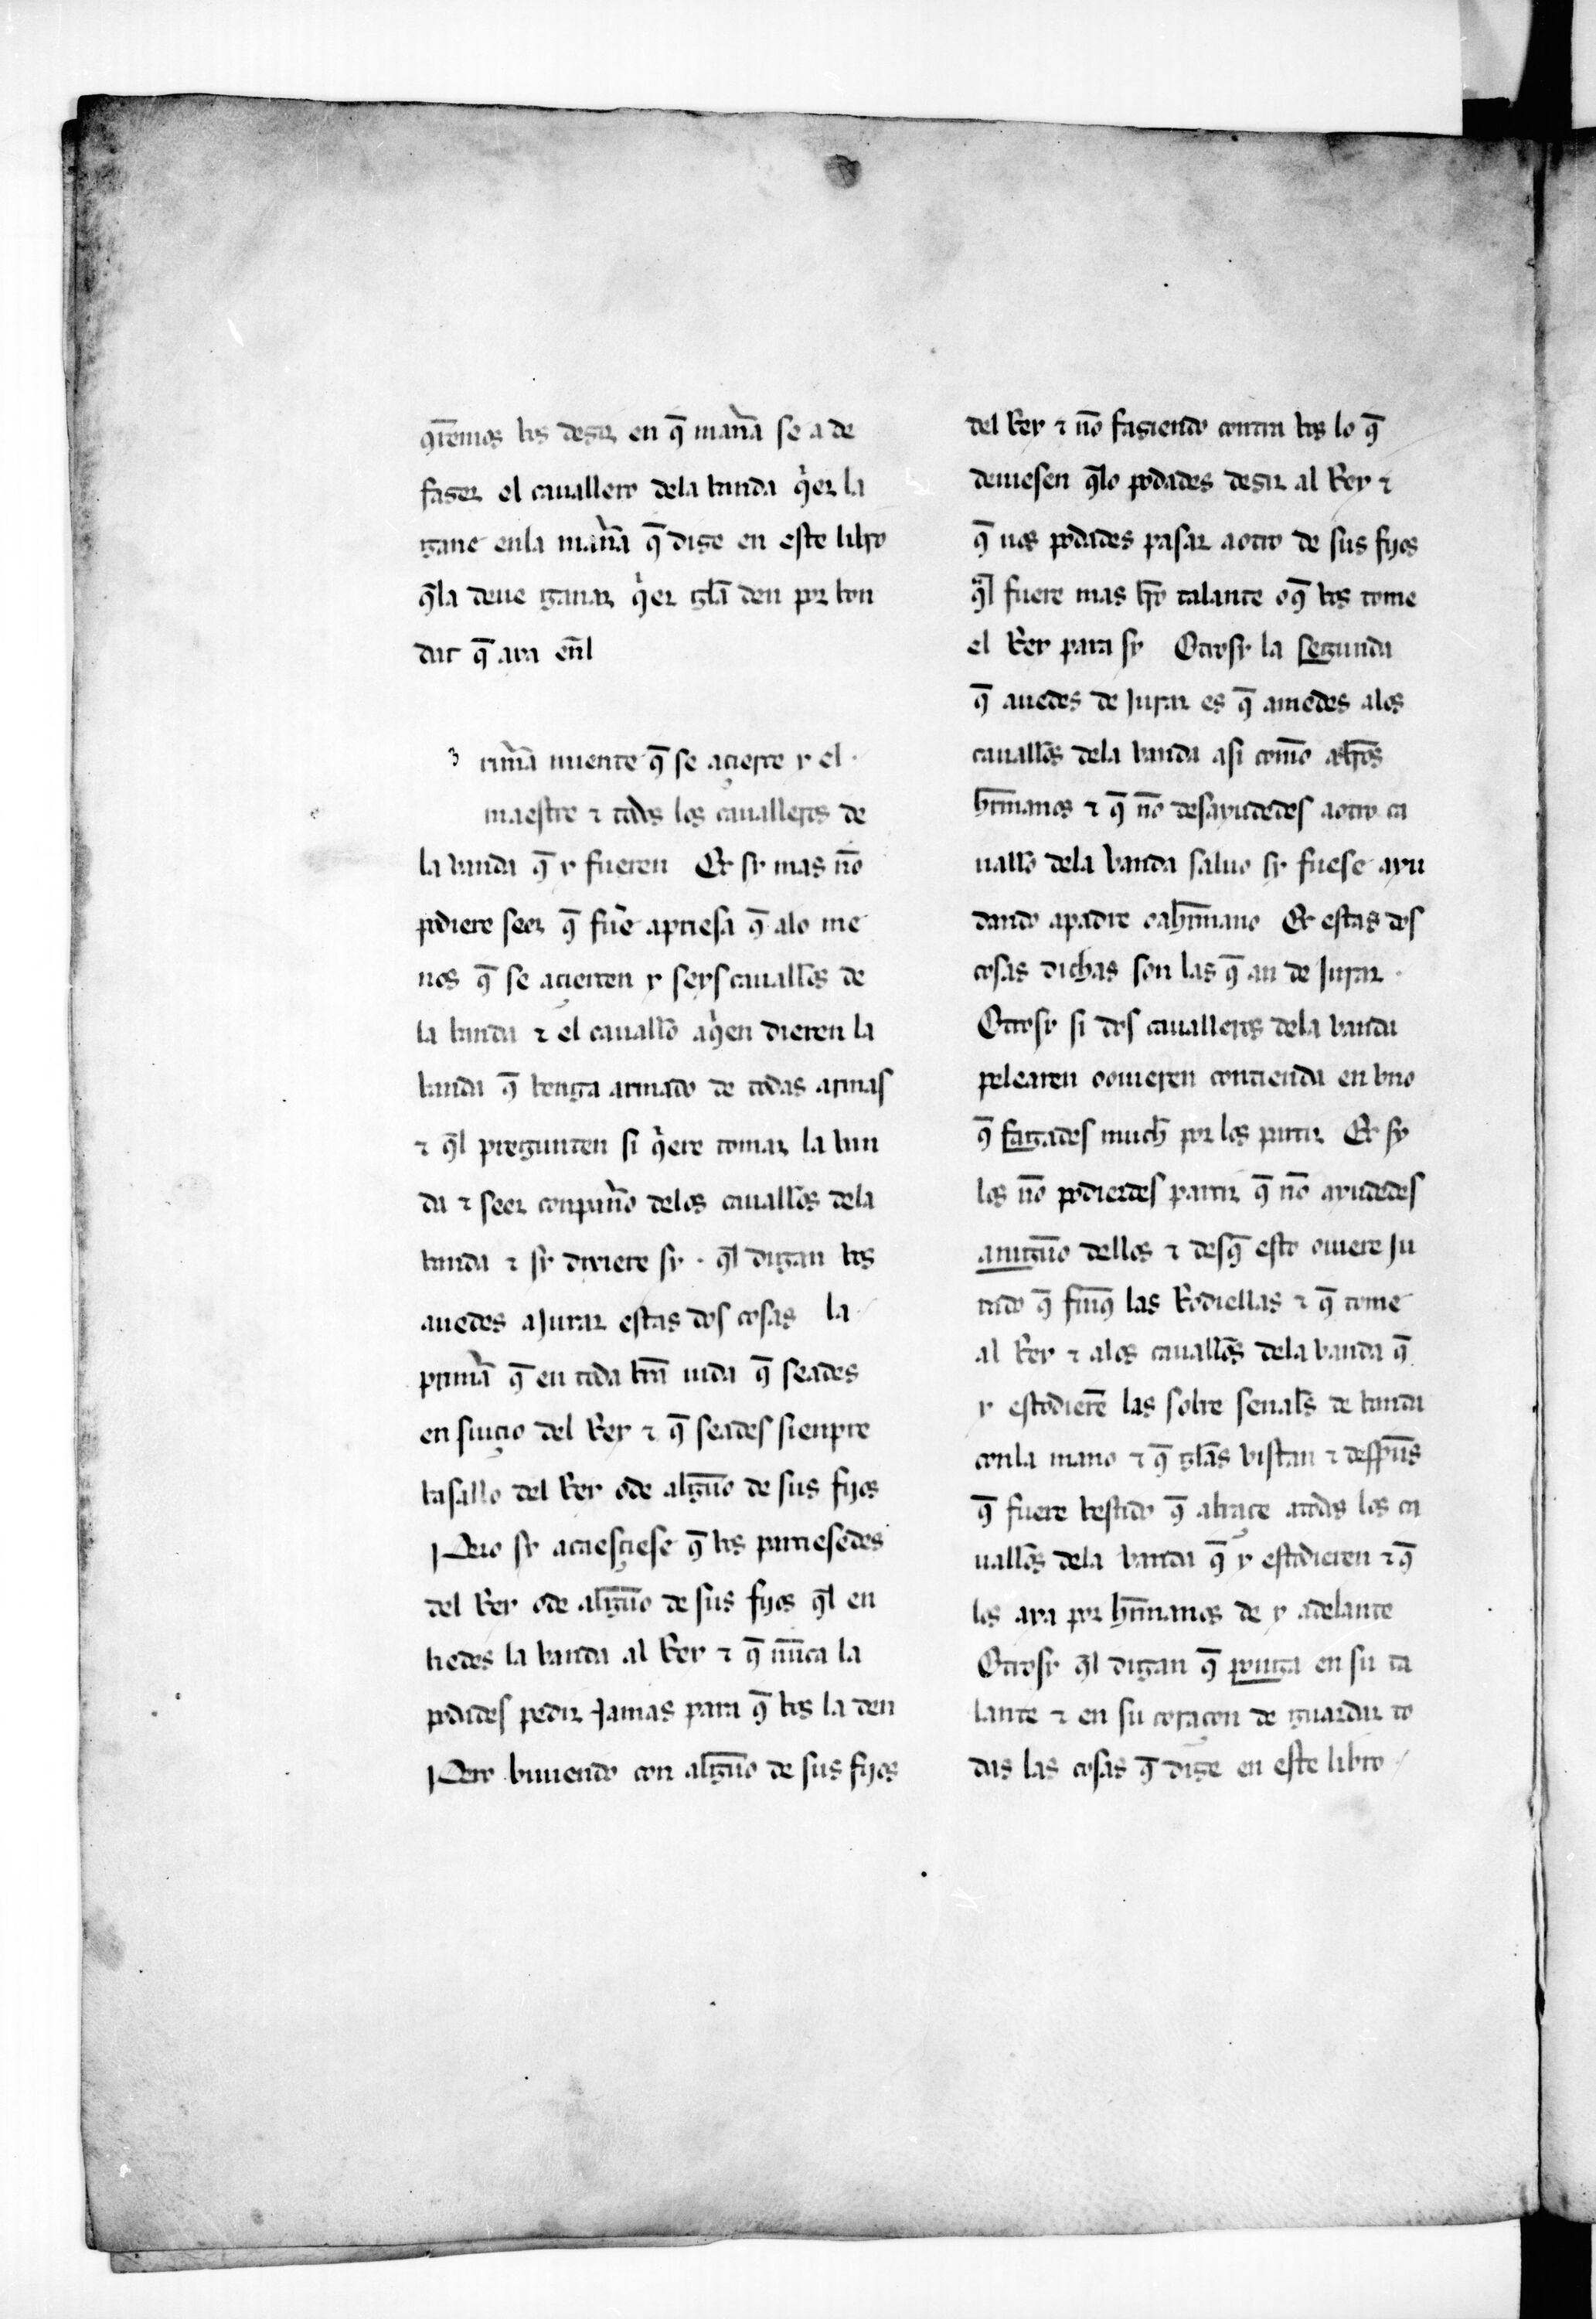 q̃remos vos desir en q̃ man̉a se a de
faser el cauallero dela vanda q̉er la
gane enla man̉a q̃ dise en este libro
q̃la deue ganar q̉er gela den por bon
dat q̃ aya en̄l
rim̉a mente q̃ se açierte y el
maestre ⁊ todos los caualleros de
la vanda q̃ y fueren Et sy mas nō
podiere seer q̃ fuẻ apriesa q̃ alo me
nos q̃ se açierten y seys cauall̃os de
la vanda ⁊ el cauall̃o aq̉en dieren la
vanda q̃ venga armado de todas armas
⁊ q̃l pregunten si q̉ere tomar la van
da ⁊ seer conpan̉o delos cauall̃os dela
vanda ⁊ sy dixiere sy · q̃l digan vos
auedes a Jurar estas dos cosas la
prim̉a q̃ en toda vr̃a vida q̃ seades
en suiçio del Rey ⁊ q̃ seades sienpre
vasallo del Rey o de algũo de sus fijos
Pero sy acaesçiese q̃ vos partiesedes
del Rey o de algũo de sus fijos q̃l en
biedes la vanda al Rey ⁊ q̃ nũca la
podades pedir Jamas para q̃ vos la den
Pero biuiendo con algũo de sus fijos
del Rey ⁊ nō fasiendo contra vos lo q̃
deuiesen q̃lo podades desir al Rey ⁊
q̃ uos podades pasar a otro de sus fijos
q̃l fuere mas vr̃o talante o q̃ vos tome
el Rey para sy Otrosy la segunda
q̃ auedes de Jurar es q̃ amedes alos
cauall̃os dela vanda asi comō a vr̃os
hr̃manos ⁊ q̃ nō desayudedes a otro ca
uall̃o dela vanda saluo sy fuese ayu
dando a padre o a hr̃mano Et estas dos
cosas dichas son las q̃ an de Jurar ·
Otrosy si dos caualleros dela vanda
pelearen o ouieren contienda en vno
q̃ fagades much̃ por los partir Et sy
los nō podierdes partir q̃ nō ayudedes
a nigũo dellos ⁊ desq̃ esto ouiere Ju
rado q̃ finq̃ las Rodiellas ⁊ q̃ tome
al Rey ⁊ alos cauall̃os dela vanda q̃
y estodierē las sobre senal̃s de vanda
conla mano ⁊ q̃ gelas vistan ⁊ despũs
q̃ fuere vestido q̃ abraçe a todos los ca
uall̃os dela vanda q̃ y estodieren ⁊ q̃
los aya por hr̃manos de y adelante
Otrosy q̃l digan q̃ ponga en su ta
lante ⁊ en su coraçon de guardar to
das las cosas q̃ dise en este libro